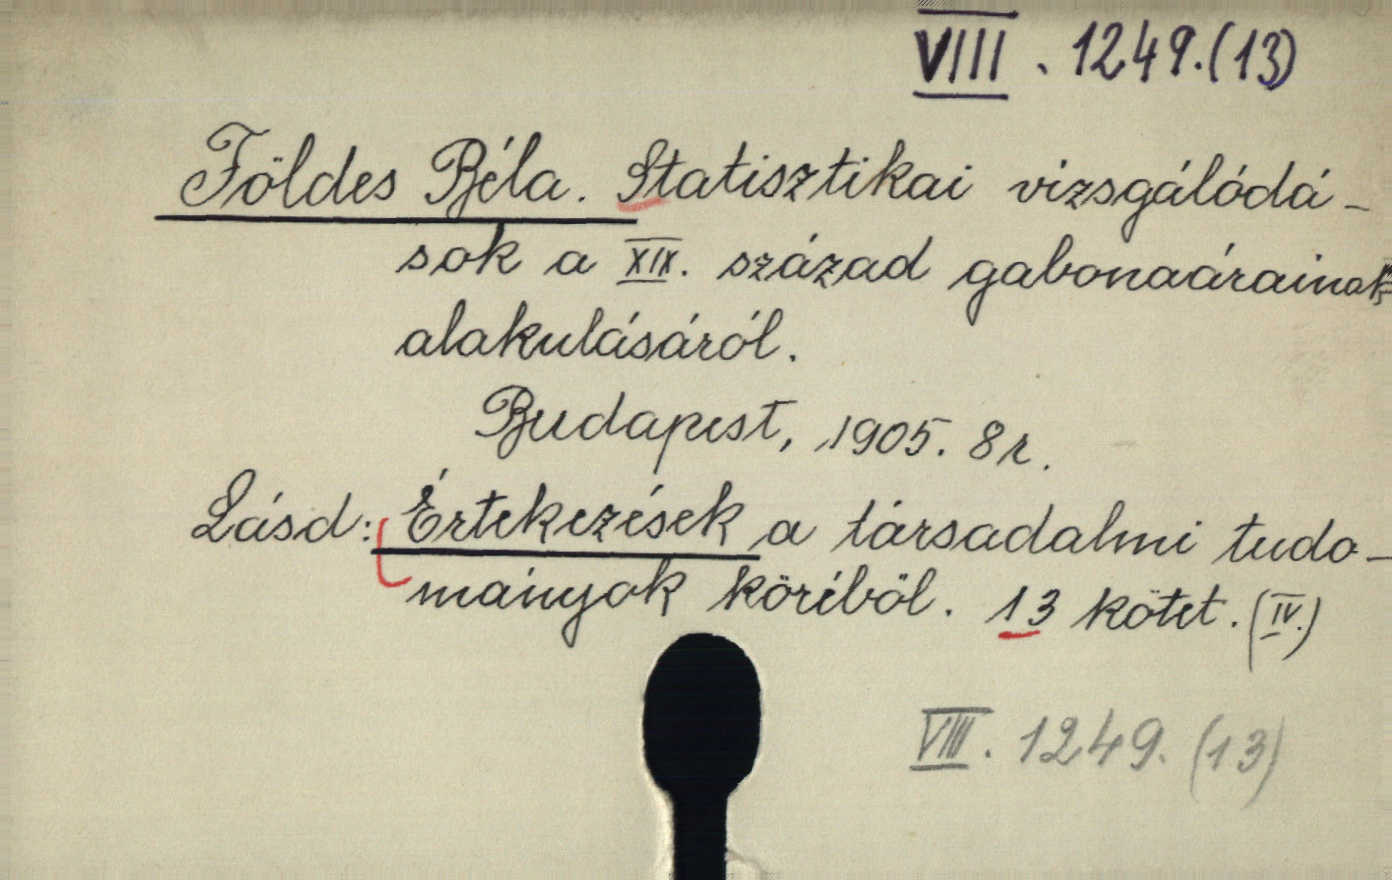 VIII. 1249. (13)
Földes Béla. Statisztikai vizsgálódá-
sok a XIX. század gabonaárainak
alakulásáról.
Budapest, 1905. 8r.
Lásd: Értekezések a társadalmi tudo-
mányok köréből. 13 kötet. (IV.)
VIII. 1249. (13)